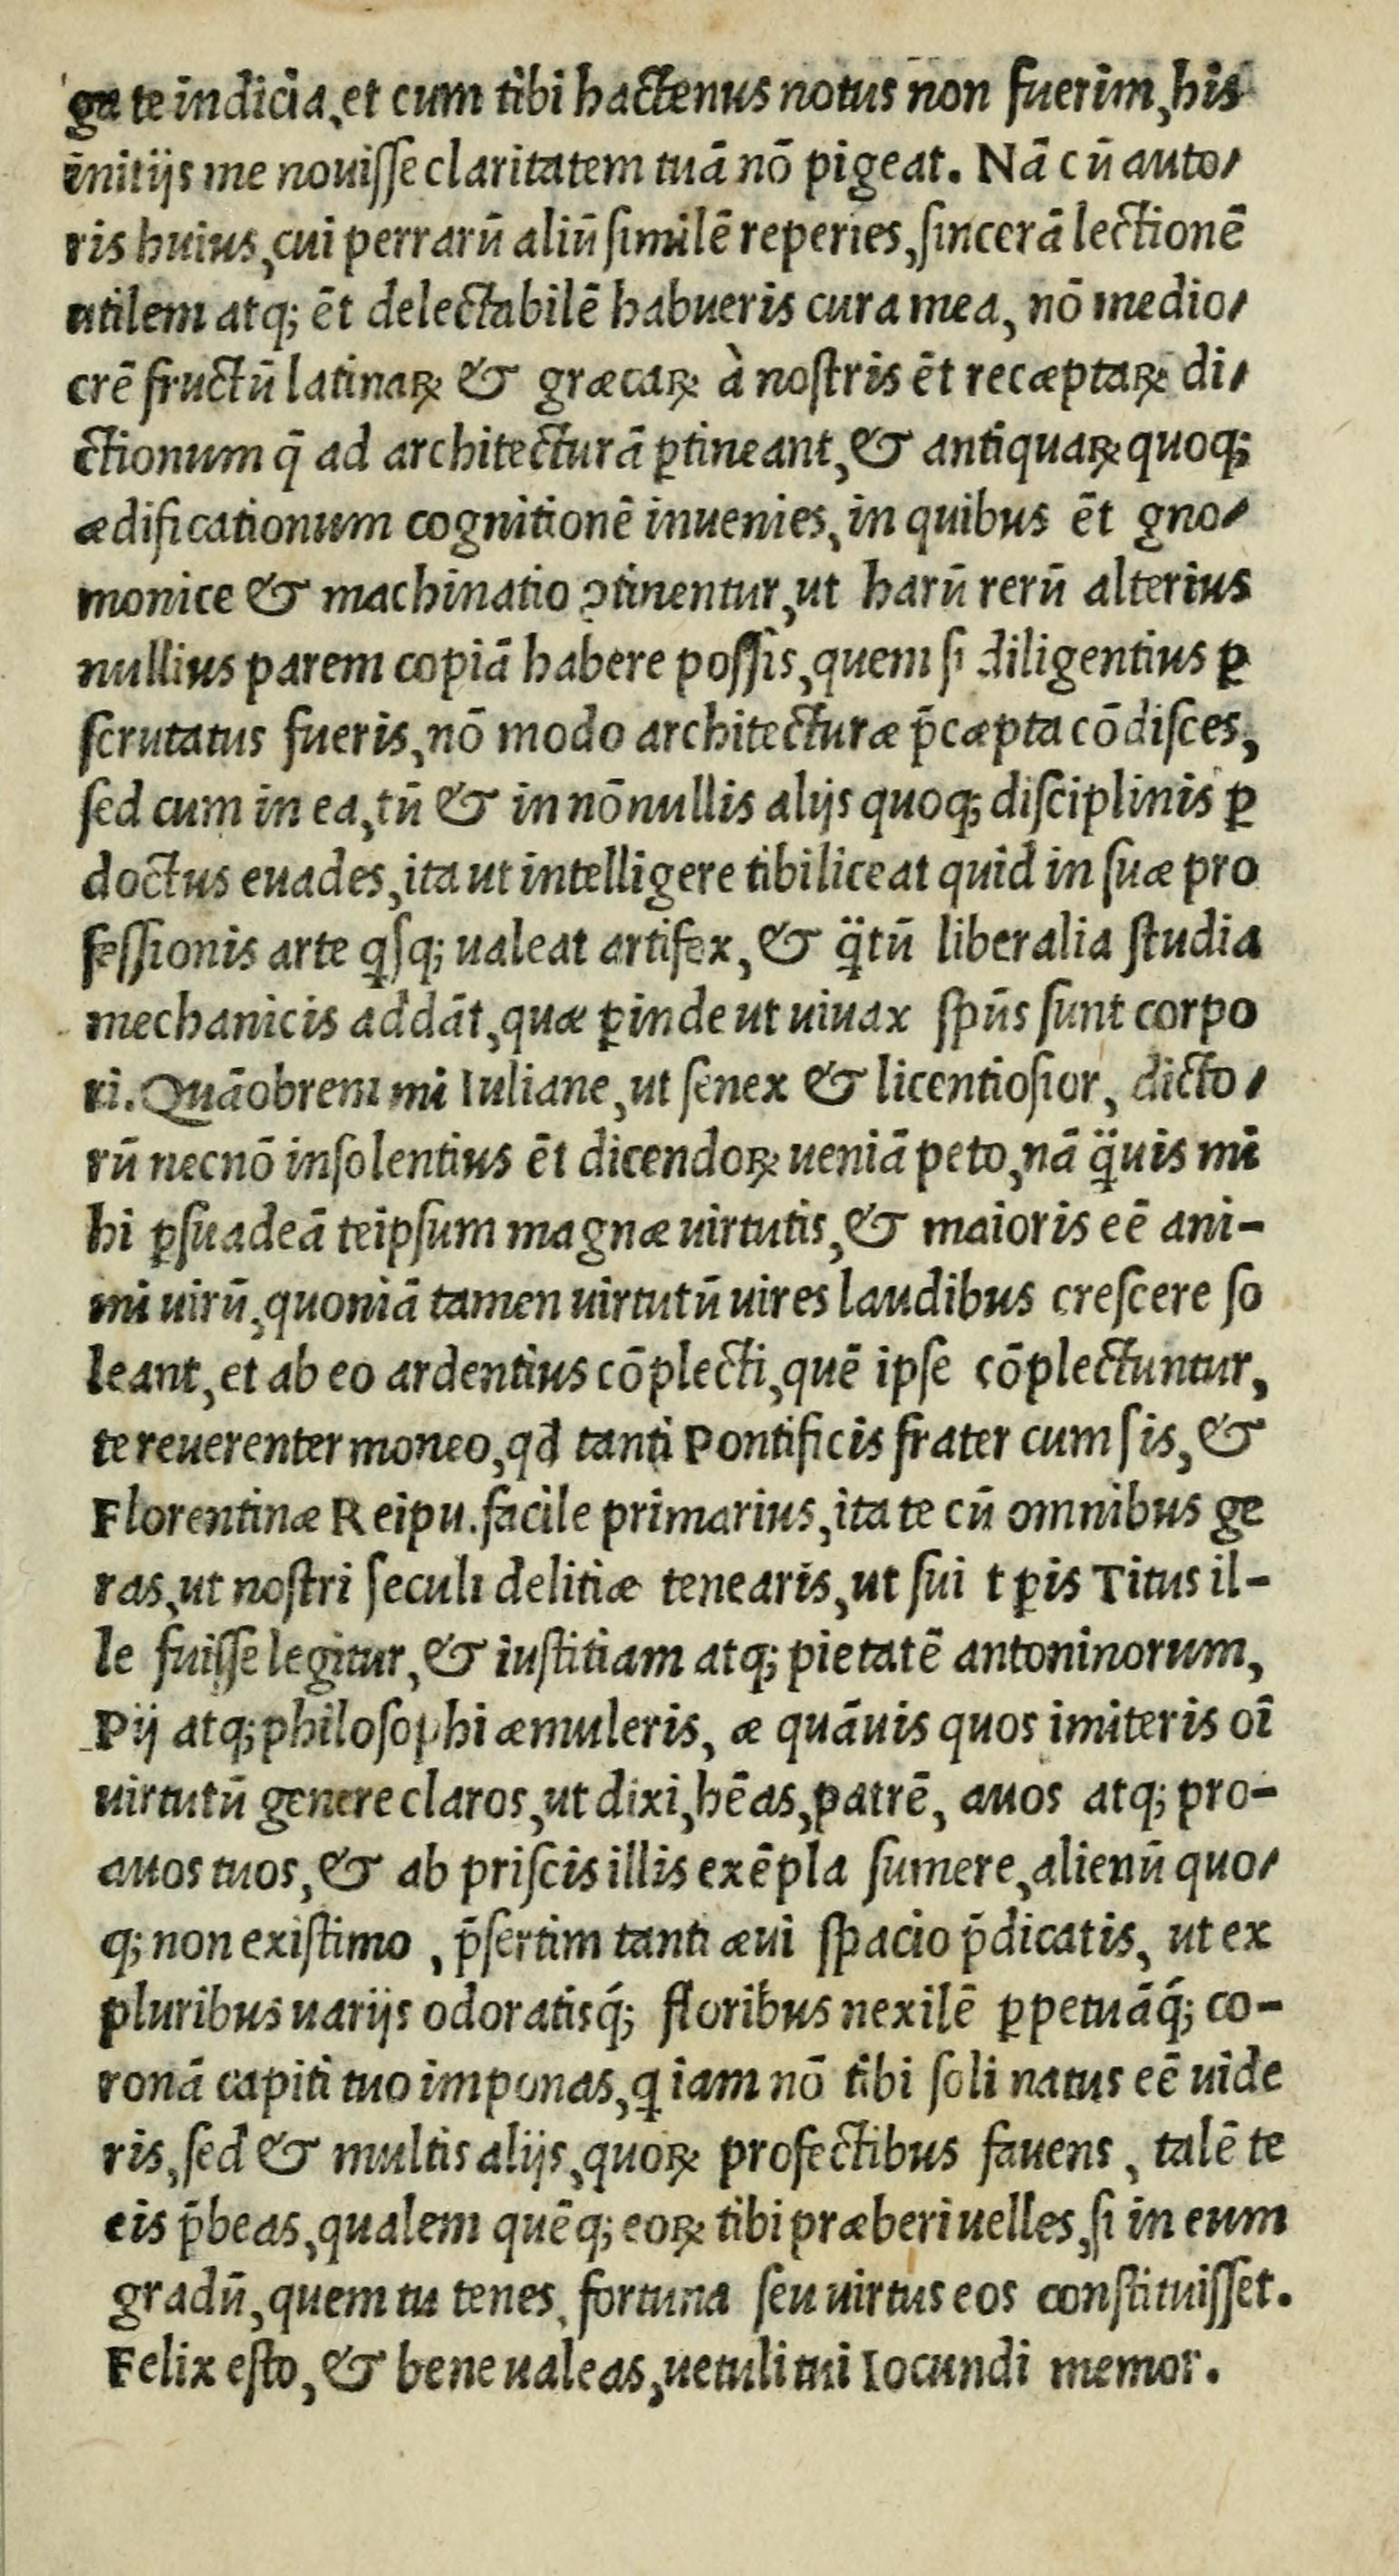 ga te indicia, et cum tibi hactenus notus non fuerim, his
initijs me nouiſſe claritatem tuā nō pigeat. Nā cū auto/
ris huius, cui perrarū aliū ſimilē reperies, ſincerā lectionē
utilem atq; ēt delectabilē habueris cura mea, nō medio/
crē fructū latinaꝝ & græcaꝝ à noſtris ēt recæptaꝝ di/
ctionum q̄ ad architecturā ꝑtineant, & antiquaꝝ quoq;
ædificationum cognitionē inuenies, in quibus ēt gno/
monice & machinatio ꝯtinentur, ut harū rerū alterius
nullius parem copiā habere poſſis, quem ſi diligentius ꝑ
ſcrutatus fueris, nō modo architecturæ p̄cæpta cōdiſces,
ſed cum in ea, tū & in nōnullis alijs quoq; diſciplinis ꝑ
doctus euades, ita ut intelligere tibi liceat quid in ſuæ pro
feſſionis arte qſq; ualeat artifex, & q̈tū liberalia ſtudia
mechanicis addāt, quæ ꝑinde ut uiuax ſpūs ſunt corpo
ri. Quāobrem mi Iuliane, ut ſenex & licentioſior, dicto/
rū necnō inſolentius ēt dicendoꝝ ueniā peto, nā q̈uis mi
hi ꝑſuadeā teipſum magnæ uirtutis, & maioris eē ani-
mi uirū, quoniā tamen uirtutū uires laudibus creſcere ſo
leant, et ab eo ardentius cōplecti, quē ipſe cōplectuntur,
te reuerenter moneo, qd tanti Pontificis frater cum ſis, &
Florentinæ Reipu. facile primarius, ita te cū omnibus ge
ras, ut noſtri ſeculi delitiæ tenearis, ut ſui tꝑis Titus il-
le fuiſſe legitur, & iuſtitiam atq; pietatē antoninorum,
Pij atq; philoſophi æmuleris, æ quāuis quos imiteris oī
uirtutū genere claros, ut dixi, hēas, patrē, auos atq; pro-
auos tuos, & ab priſcis illis exēpla ſumere, alienū quo/
q; non exiſtimo, p̄ſertim tanti æui ſpacio p̄dicatis, ut ex
pluribus uarijs odoratisq́; floribus nexilē ꝑpetuāq́; co-
ronā capiti tuo imponas, q iam nō tibi ſoli natus eē uide
ris, ſed & multis alijs, quoꝝ profectibus fauens, talē te
eis p̄beas, qualem quēq; eoꝝ tibi præberi uelles, ſi in eum
gradū, quem tu tenes, fortuna ſeu uirtus eos conſtituiſſet.
Felix eſto, & bene ualeas, uetuli tui Iocundi memor.